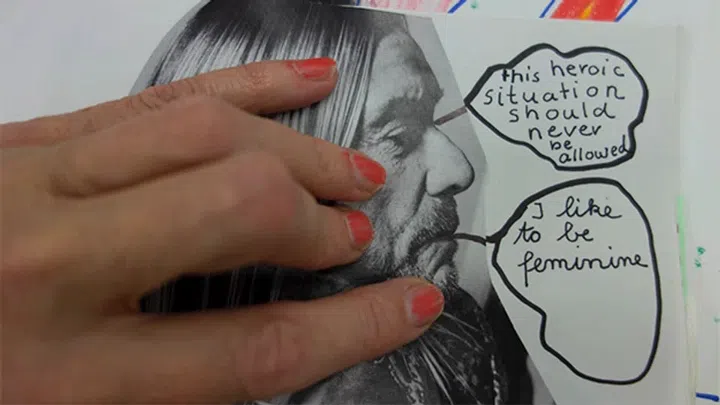 this heroic
situation
should
never
be
allowed
I like
to be
feminine